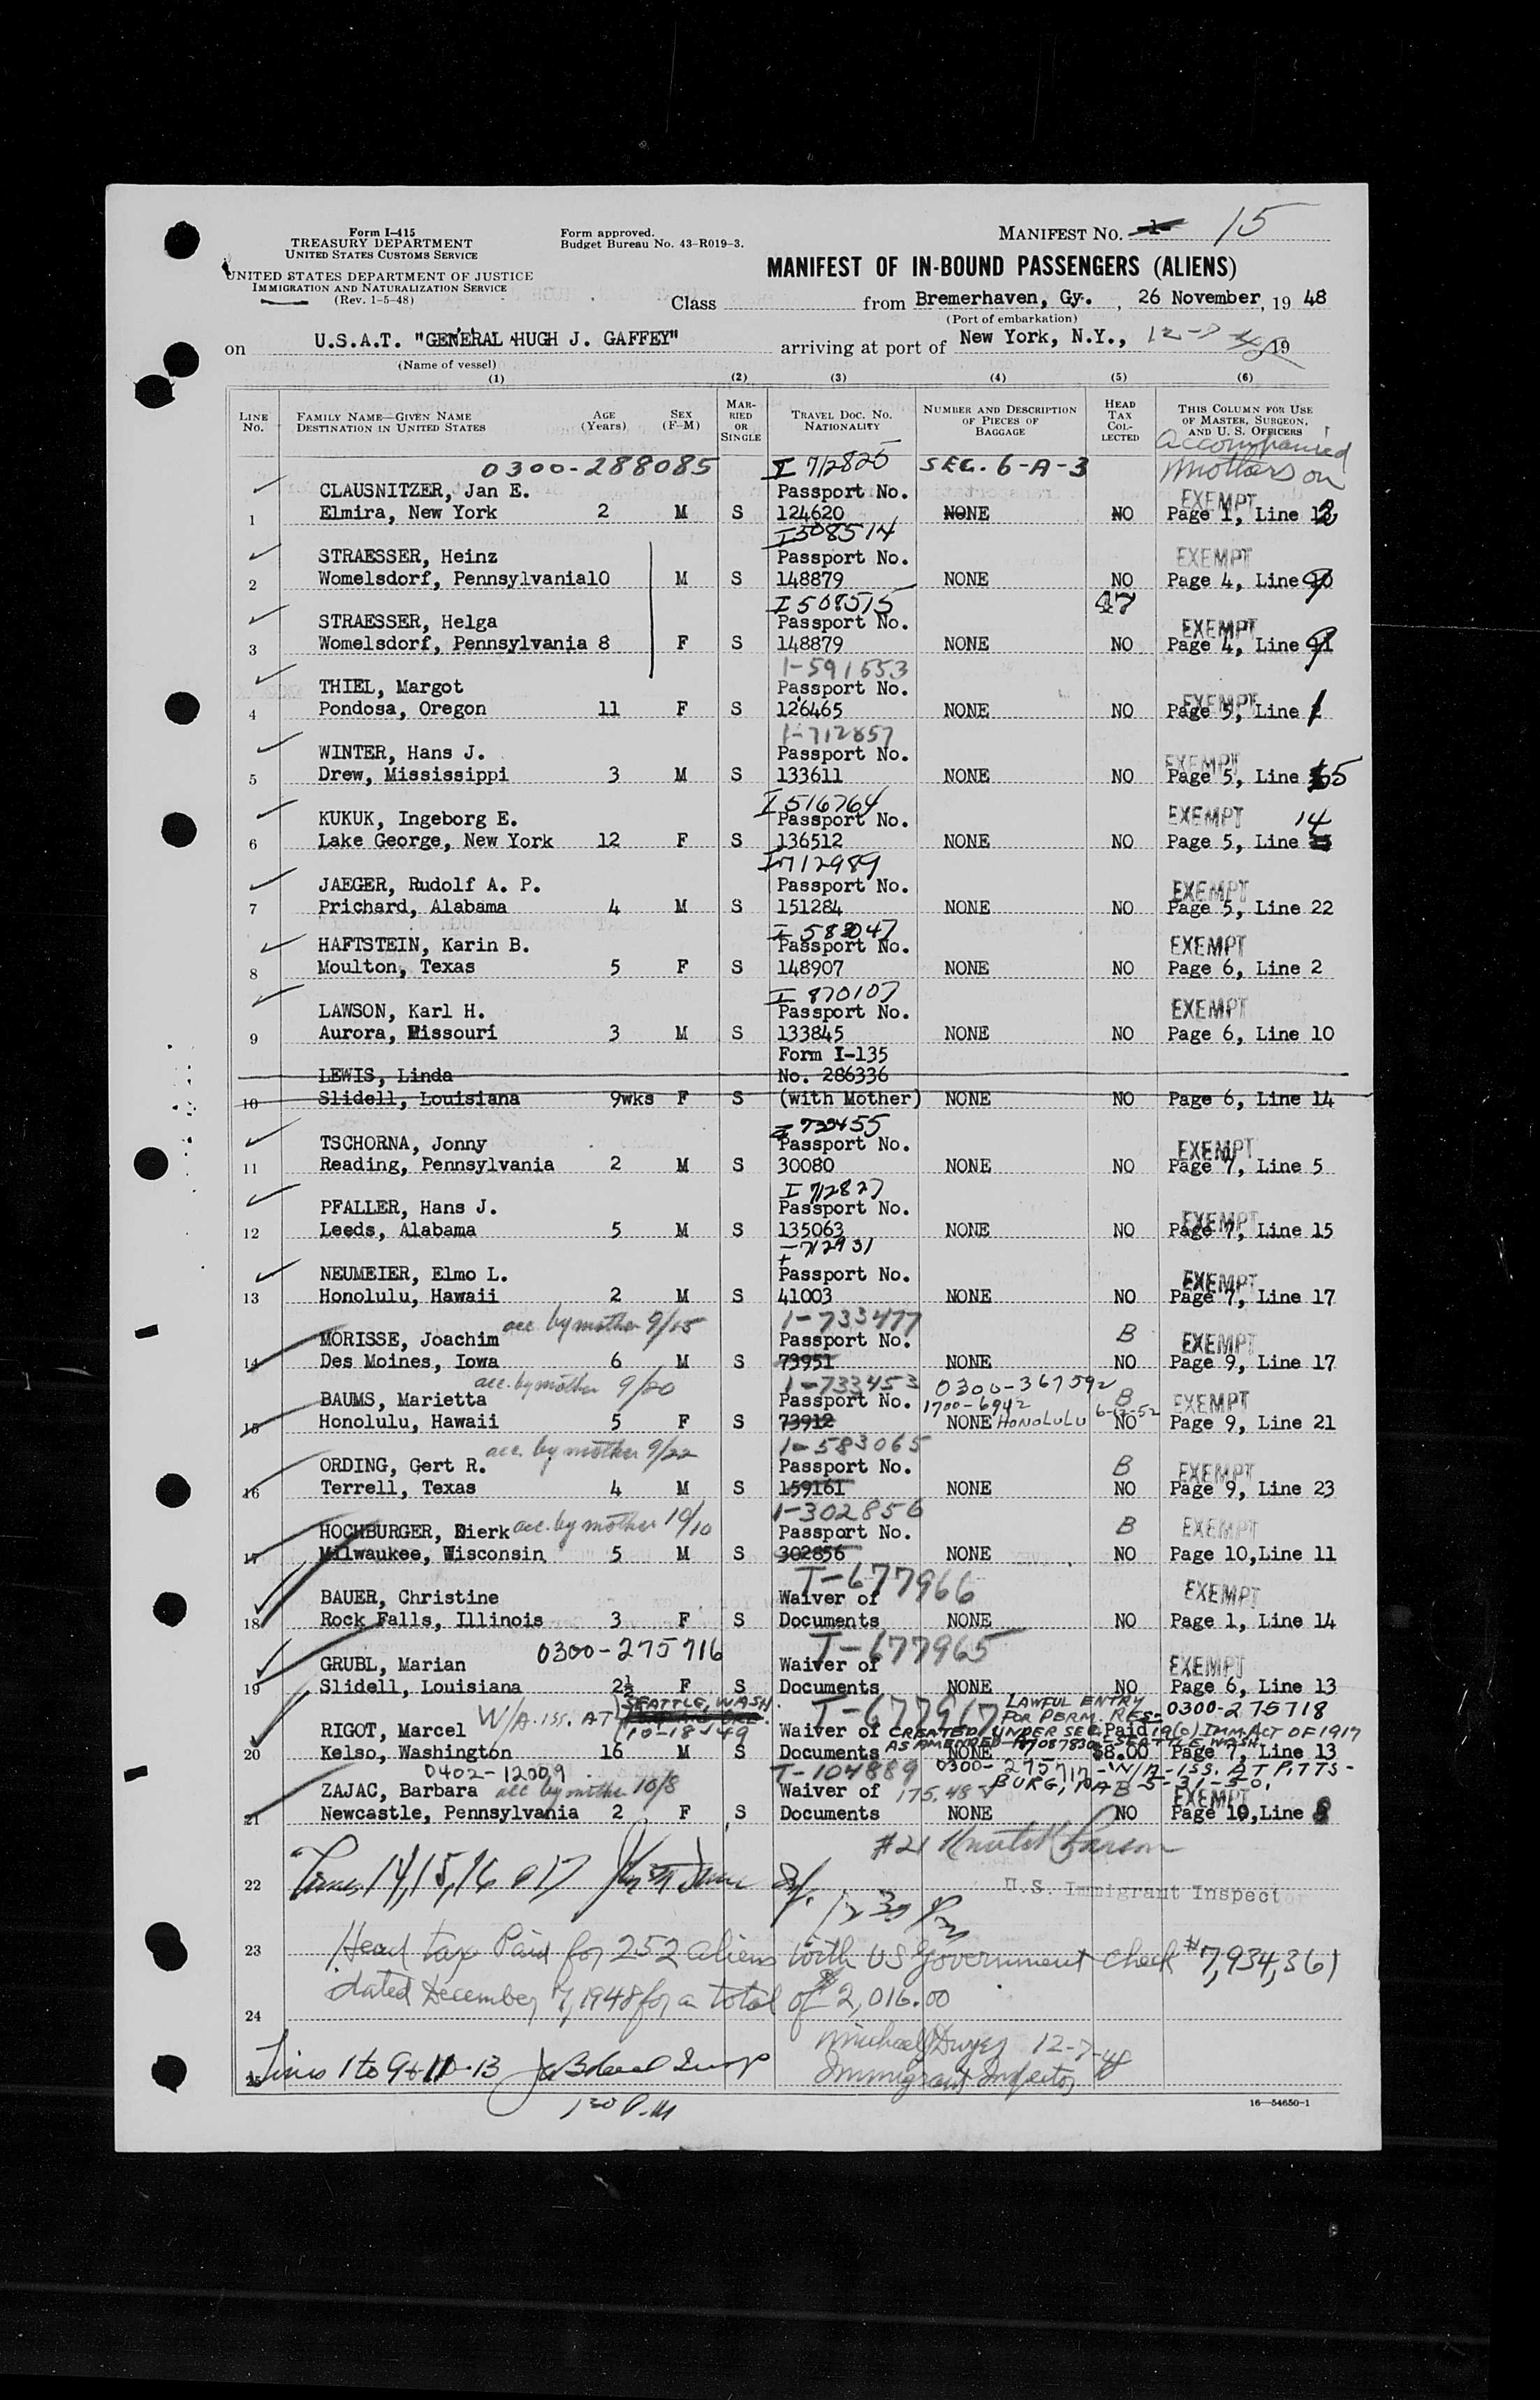 Form I-415
TREASURY DEPARTMENT
UNITED STATES CUSTOMS SERVICE
UNITED STATES DEPARTMENT OF JUSTICE
IMMIGRATION AND NATURALIZATION SERVICE
(Rev. 1-5-48)
Form approved.
Budget Bureau No. 43-R019-3.
MANIFEST NO. 15
MANIFEST OF IN-BOUND PASSENGERS (ALIENS)
Class from Bremerhaven, Gy., 26 November, 19 48
(Port of embarkation)
on U.S.A.T. "GENERAL HUGH J. GAFFEY" arriving at port of New York, N.Y., 12-7-48 19
(Name of vessel)
(1) (2) (3) (4) (5) (6)
LINE NO. FAMILY NAME—GIVEN NAME DESTINATION IN UNITED STATES AGE (YEARS) SEX (F-M) MARRIED OR SINGLE TRAVEL DOC. NO. NATIONALITY NUMBER AND DESCRIPTION OF PIECES OF BAGGAGE HEAD TAX COLLECTED THIS COLUMN FOR USE OF MASTER, SURGEON, AND U. S. OFFICERS
Accompanied
0300-288085 I 712825 SEC. 6-A-3 mothers on
CLAUSNITZER, Jan E. Passport No. EXEMPT
1 Elmira, New York 2 M S 124620 NONE NO Page 1, Line 12
I508514
STRAESSER, Heinz Passport No. EXEMPT
2 Womelsdorf, Pennsylvania 10 M S 148879 NONE NO Page 4, Line 9
I 508515 47
STRAESSER, Helga Passport No. EXEMPT
3 Womelsdorf, Pennsylvania 8 F S 148879 NONE NO Page 4, Line 9
1-591553
THIEL, Margot Passport No. EXEMPT
4 Pondosa, Oregon 11 F S 126465 NONE NO Page 5, Line 1
1-712857
WINTER, Hans J. Passport No. EXEMPT
5 Drew, Mississippi 3 M S 133611 NONE NO Page 5, Line 5
I 516764
KUKUK, Ingeborg E. Passport No. EXEMPT 14
6 Lake George, New York 12 F S 136512 NONE NO Page 5, Line
I 712989
JAEGER, Rudolf A. P. Passport No. EXEMPT
7 Prichard, Alabama 4 M S 151284 NONE NO Page 5, Line 22
I 583047
HAFTSTEIN, Karin B. Passport No. EXEMPT
8 Moulton, Texas 5 F S 148907 NONE NO Page 6, Line 2
I 870107
LAWSON, Karl H. Passport No. EXEMPT
9 Aurora, Missouri 3 M S 133845 NONE NO Page 6, Line 10
Form I-135
LEWIS, Linda No. 286336
10 Slidell, Louisiana 9wks F S (with Mother) NONE NO Page 6, Line 14
I 733455
TSCHORNA, Jonny Passport No. EXEMPT
11 Reading, Pennsylvania 2 M S 30080 NONE NO Page 7, Line 5
I 712827
PFALLER, Hans J. Passport No. EXEMPT
12 Leeds, Alabama 5 M S 135063 NONE NO Page 7, Line 15
I-712931
NEUMEIER, Elmo L. Passport No. EXEMPT
13 Honolulu, Hawaii 2 M S 41003 NONE NO Page 7, Line 17
acc. by mother 9/15 1-733477
MORISSE, Joachim Passport No. B EXEMPT
14 Des Moines, Iowa 6 M S 73951 NONE NO Page 9, Line 17
acc. by mother 9/20 1-733453 0300-367592
BAUMS, Marietta Passport No. 1700-6942 B EXEMPT
15 Honolulu, Hawaii 5 F S 73912 NONE HONOLULU NO Page 9, Line 21
acc. by mother 9/22 1-583065
ORDING, Gert R. Passport No. B EXEMPT
16 Terrell, Texas 4 M S 159161 NONE NO Page 9, Line 23
1-302856
HOCHBURGER, Dierk acc. by mother 10/10 Passport No. B EXEMPT
17 Milwaukee, Wisconsin 5 M S 302856 NONE NO Page 10, Line 11
T-677966
BAUER, Christine Waiver of EXEMPT
18 Rock Falls, Illinois 3 F S Documents NONE NO Page 1, Line 14
0300-275716 T-677965
GRUBL, Marian Waiver of EXEMPT
19 Slidell, Louisiana 2½ F S Documents NONE NO Page 6, Line 13
SEATTLE, WASH. T-677967 LAWFUL ENTRY 0300-275718
W/A. ISS. AT 10-18-49 FOR PERM. RES-
RIGOT, Marcel Waiver of CREATED UNDER SEC. Paid 19(c) IMM. ACT OF 1917
AS AMENDED SEATTLE, WASH.
20 Kelso, Washington 16 M S Documents NONE $8.00 Page 7, Line 13
0402-12009 T-104889 0300-275717-W/A-ISS. AT PITTS-
ZAJAC, Barbara acc by mother 10/8 Waiver of BURG, PA 5-31-50. EXEMPT
21 Newcastle, Pennsylvania 2 F S Documents NONE NO Page 10, Line 8
#21
22 Lines 14, 15, 16 & 17 U.S. Immigrant Inspector
1230 Pm
23 Head tax Paid for 252 aliens with US Government check #7,934,361
dated December 7, 1948 for a total of $2,016.00
24
Michael Dwyer 12-7-48
25 Lines 1 to 9 & 11-13 Immigrant Inspector
130 P.M
16—54650-1